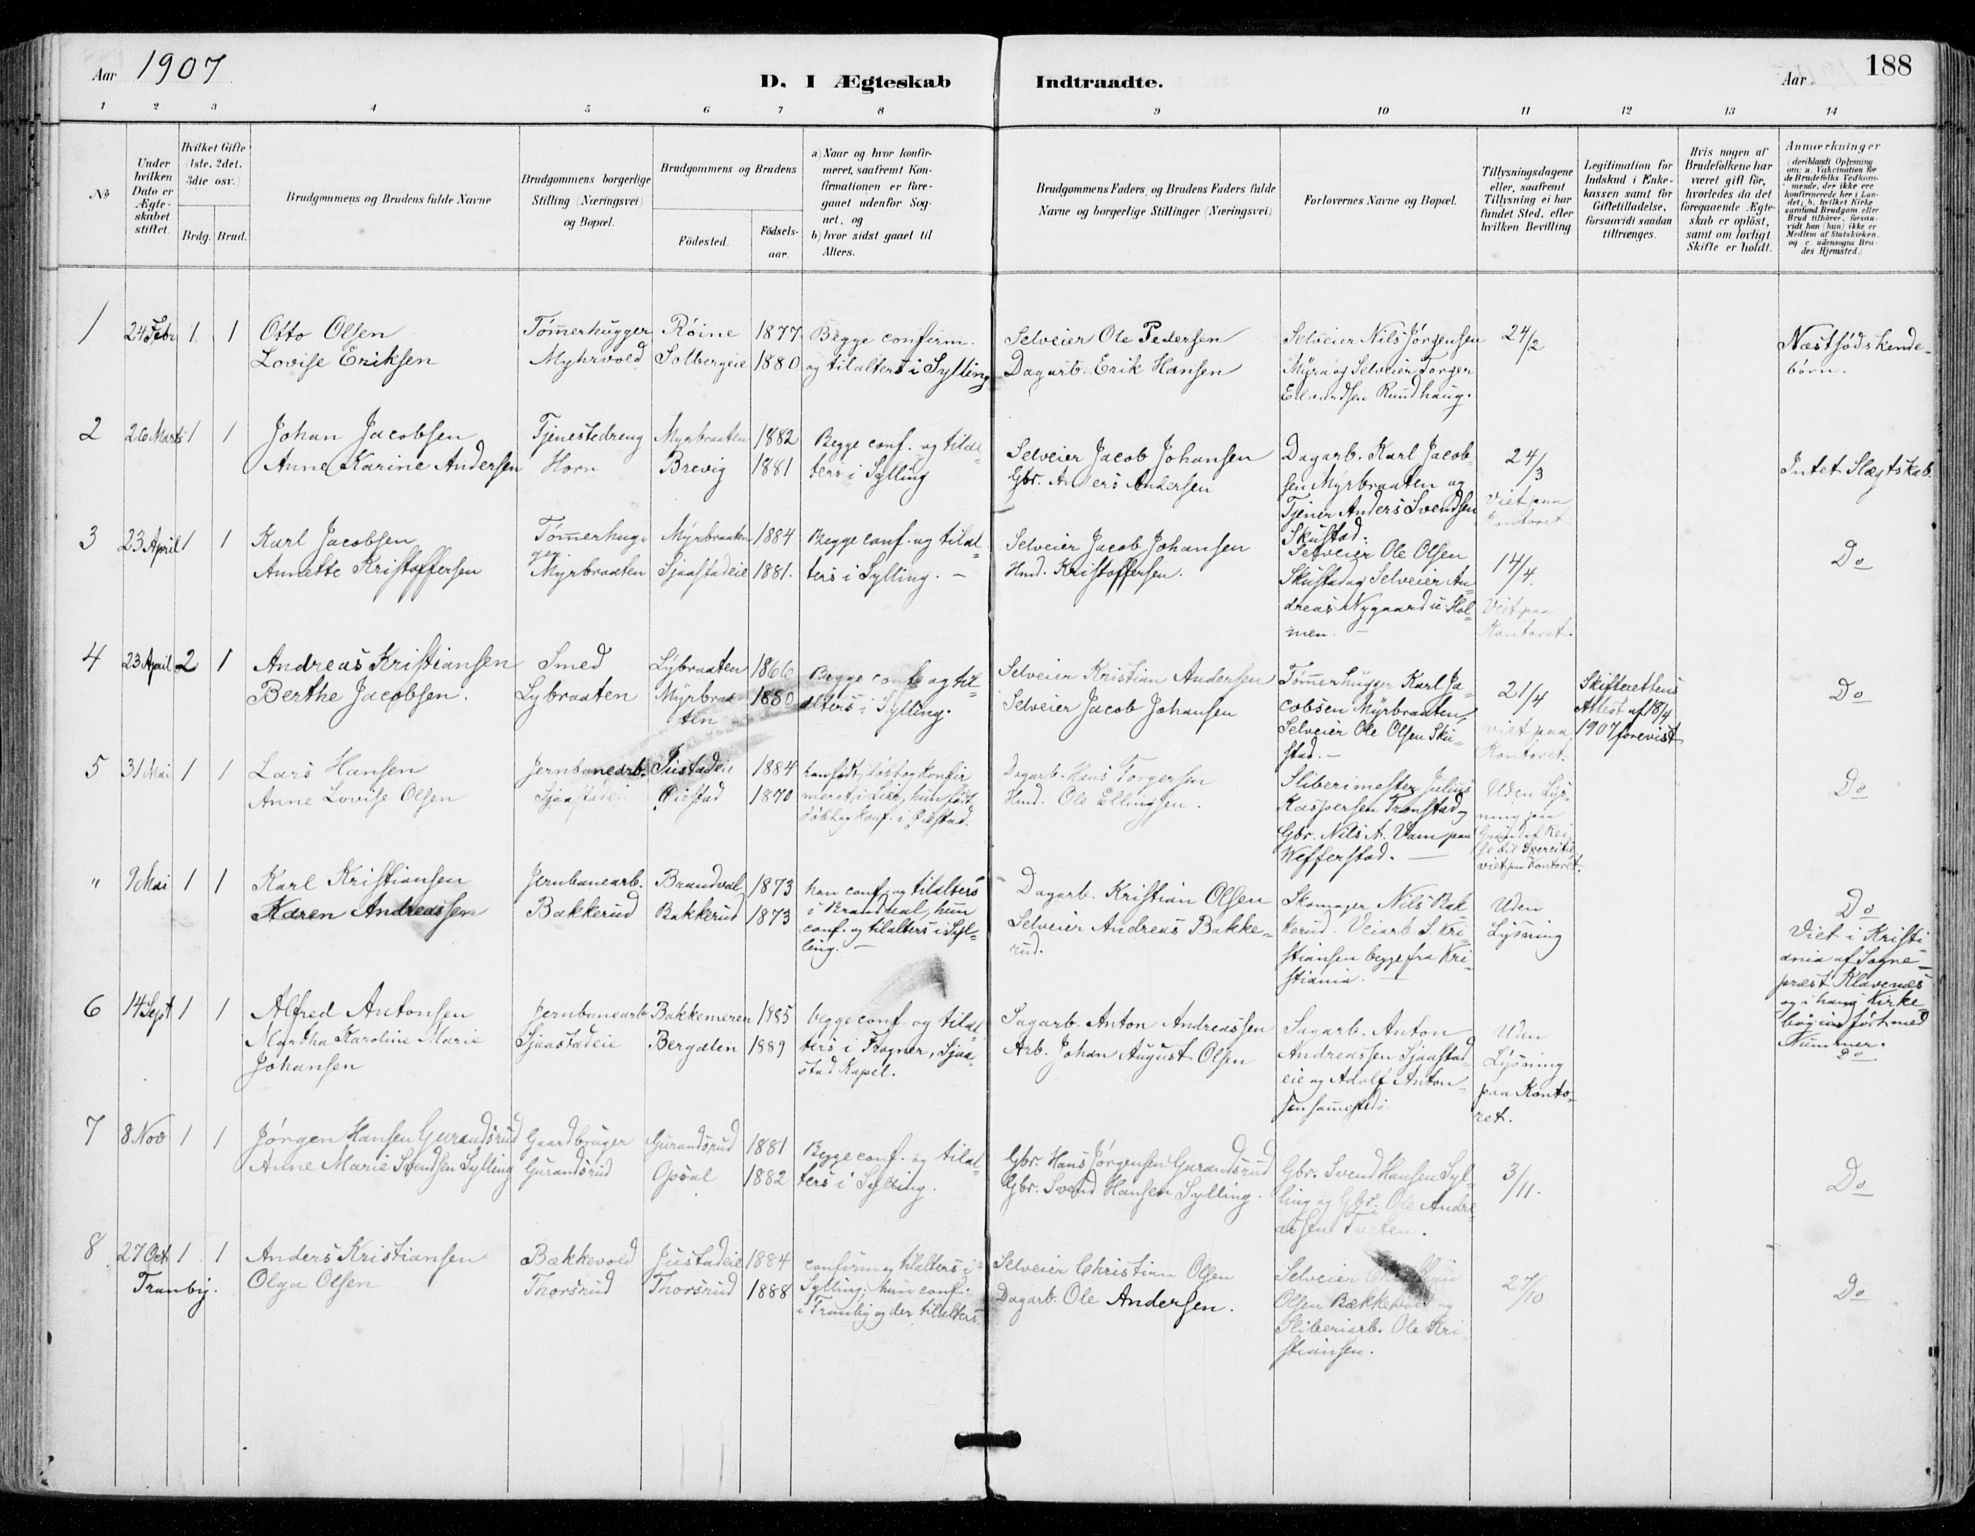 Aar 1907
D. I Ægteskab Indtraadte.
Aar 188
1 2 3 4 5 6 7 8 9 10 11 12 13 14
No
Under hvilken Dato er Ægte- skabet stiftet.
Hvilket Gifte (1ste, 2det, 3die osv.)
Brdg. Brud.
Brudgommens og Brudens fulde Navne
Brudgommens borgerlige Stilling (Næringsvei) og Bopæl.
Brudgommens og Brudens
Födested.
Födsels- aar.
a) Naar og hvor konfir- meret, saafremt Kon- firmationen er fore- gaaet udenfor Sog- net, og
b) hvor sidst gaaet til Alters.
Brudgommens Faders og Brudens Faders fulde Navne og borgerlige Stillinger (Næringsvei)
Forlovernes Navne og Bopæl.
Tillysningsdagene eller, saafremt Tillysning ei har fundet Sted, efter hvilken Bevilling.
Legitimation for Indskud i Enke- kassen samt for Giftetilladelse, forsaavidt saadan tiltrænges.
Hvis nogen af Brudefolkene har været gift för, hvorledes da det foregaaende Ægte- skab er oplöst, samt om lovligt Skifte er holdt.
Anmærkninger
(deriblandt Oplysning om: a. Vakcination for de Brudefolks Vedkom- mende, der ikke ere konfirmerede her i Lan- det; b. hvilket Kirke samfund Brudgom eller Brud tilhörer, forsaa- vidt han (hun) ikke er Medlem af Statskirken, og c. udensogns Bru- des Hjemsted.)
1 24 Febr 1 1
Otto Olsen
Lovise Eriksen
Tømmerhugger
Myhrvold
Røine 1877
Solbergeie 1880
Begge confirm.
og tilalters i Sylling
Selveier Ole Pedersen
Dagarb. Erik Hansen
Selveier Nils Jørgensen
Myra og Selveier Torger
Edvardsen Rundhaug.
24/2
Næstsødskende-
børn.
2 26 Marts 1 1
Johan Jacobsen
Anne Karine Andersen
Tjenestedreng
Horn
Myrbraaten 1882
Brevig 1881
Begge conf. og tilal-
ters i Sylling
Selveier Jacob Johansen
Gbr. Anders Andersen
Dagarb. Karl Jacob-
sen Myrbraaten og
Tjener Anders Svendsen
Skustad.
24/3
Viet paa
Kontoret
Intet Slægtskab.
3 23 April 1 1
Karl Jacobsen
Annette Kristoffersen
Tømmerhug-
ger
Myrbraaten
Myrbraaten 1884
Sjaastadeie 1881.
Begge conf. og tilal-
ters i Sylling. –
Selveier Jacob Johansen
Hmd. Kristoffersen.
Selveier Ole Olsen
Skustad og Selveier An-
dreas Nygaard u. Hol-
men. –
14/4.
Viet paa
Kontoret.
Do
4 23 April 2 1
Andreas Kristiansen
Berthe Jacobsen.
Smed
Lybraaten
Lybraaten 1866
Myrbraa-
ten 1880
Begge conf. og til-
alters i Sylling.
Selveier Kristian Andersen
Selveier Jacob Johansen
Tømmerhugger Karl Ja-
cobsen Myrbraaten,
Selveier Ole Olsen Sku-
stad. –
21/4
viet paa
Kontoret.
Skifterettens
Attest af 18/4
1907 forevist
Do
5 31 Mai 1 1
Lars Hansen
Anne Lovise Olsen
Jernbanearb.
Sjaastadeie
Tustadeie 1884
Øiestad 1870
han født, døbt og konfir
meret i Lier, hun født
døbt og konf. i Øiestad.
Dagarb. Hans Torgersen
Hmd. Ole Ellingsen.
Sliberimester Julius
Kaspersen Tronstad og
Gbr. Nils A. Vam paa
Wefferstad. –
Uden Lys-
ning paa
Grund af Rei-
se til Exercitie
viet paa Kontoret.
Do
" 9 Mai 1 1
Karl Kristiansen
Karen Andreassen
Jernbanearb.
Bakkerud
Brandval 1873
Bakkerud 1873
han conf. og tilalters
i Brandval, hun
conf. og tilalters i Syl-
ling. –
Dagarb. Kristian Olsen
Selveier Andreas Bakke-
rud.
Skomager Nils Bak
kerud. Veiarb. S. Kri-
stiansen begge fra Kri-
stiania. –
Uden
Lysning
Do
Viet i Kristi-
ania af Sogne-
præst Klavenæs
og i hans Kirke
bog indført med
Nummer.
6 14 Sept 1 1
Alfred Antonsen
Martha Karoline Marie
Johansen
Jernbanearb
Sjaastadeie
Bakkemeren 1885
Bergalen 1889
begge conf. og tilal-
ters i Frogner, Sjaa-
stad Kapel.
Sagarb. Anton Andreassen
Arb. Johan August Olsen
Sagarb. Anton
Andreassen Sjaastad
eie og Adolf Anton-
sen samsteds.
Uden
Lysning
paa Konto-
ret.
Do
7 8 Nov 1 1
Jørgen Hansen Gurandsrud
Anne Marie Svendsen Sylling
Gaardbruger
Gurandsrud
Gurandsrud 1881
Opsal 1882
Begge conf. og tilal-
ters i Sylling.
Gbr. Hans Jørgensen Gurandsrud
Gbr. Svend Hansen Sylling.
Gbr. Svend Hansen Syl-
ling og Gbr. Ole Andre-
assen Tveten.
3/11.
Do
8 27 Oct 1 1
Tranby.
Anders Kristiansen
Olga Olsen
Bækkevold
Thorsrud
Justadeie 1884
Thorsrud 1888
confirm og tilalters i
Sylling, hun conf.
i Tranby og der tilalters
Selveier Christian Olsen
Dagarb. Ole Andersen.
Selveier
Olsen Bækkevold og
Sliberiarb. Ole Kri
stiansen.
27/10
Do